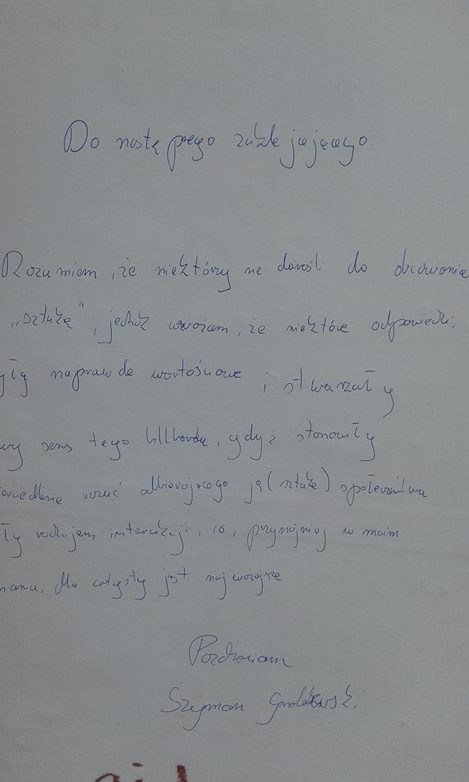 Do następnego zaklejającego
Rozumiem, że niektórzy nie dorośli do obcowania
"sztuką", jednak uważam, że niektóre odpowiedzi
były naprawdę wartościowe i stwarzały
sens tego billboardu, gdyż stanowiły
uczuć odbierającego ją (sztukę) społeczeństwa
rodzajem interakcji, co, przynajmniej w moim
dla artysty jest najważniejsze
Pozdrawiam
Szymon